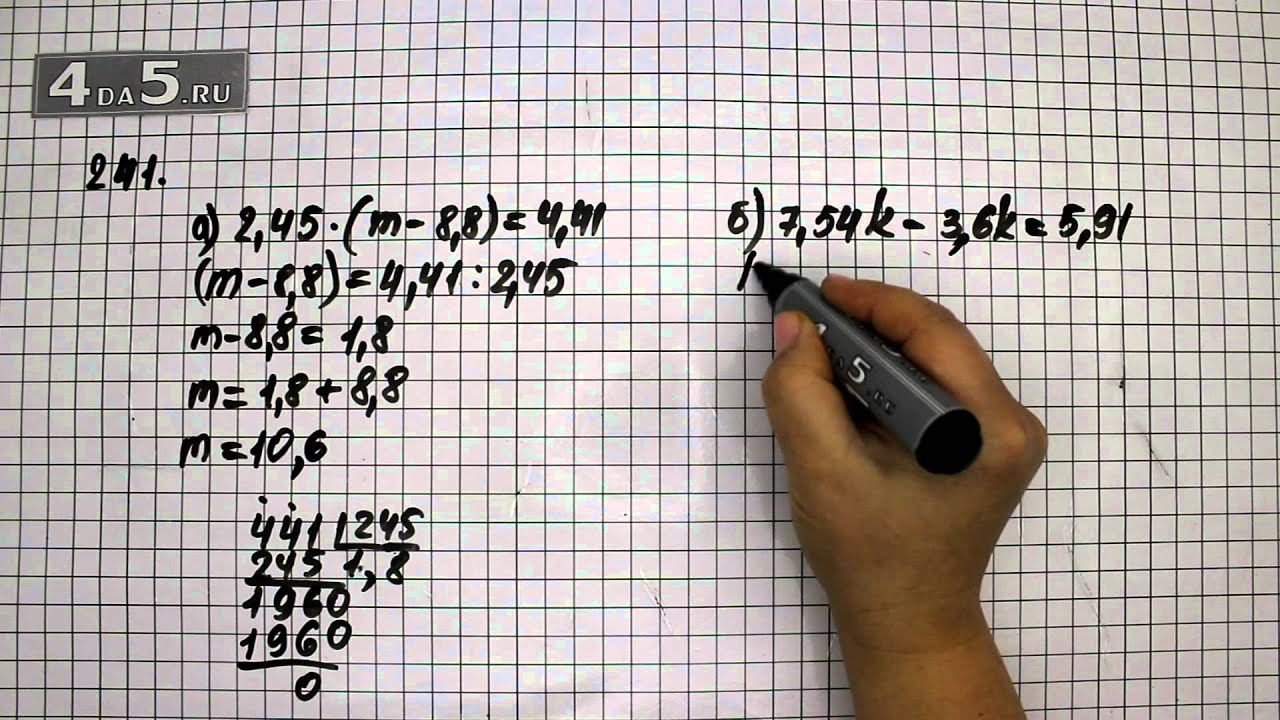 4DA5.RU
241.
а) 2,45·(m-8,8)=4,41
(m-8,8)=4,41:2,45
m-8,8=1,8
m=1,8+8,8
m=10,6
441 245
245 1,8
1960
1960
0
б) 7,54k-3,6k=5,91